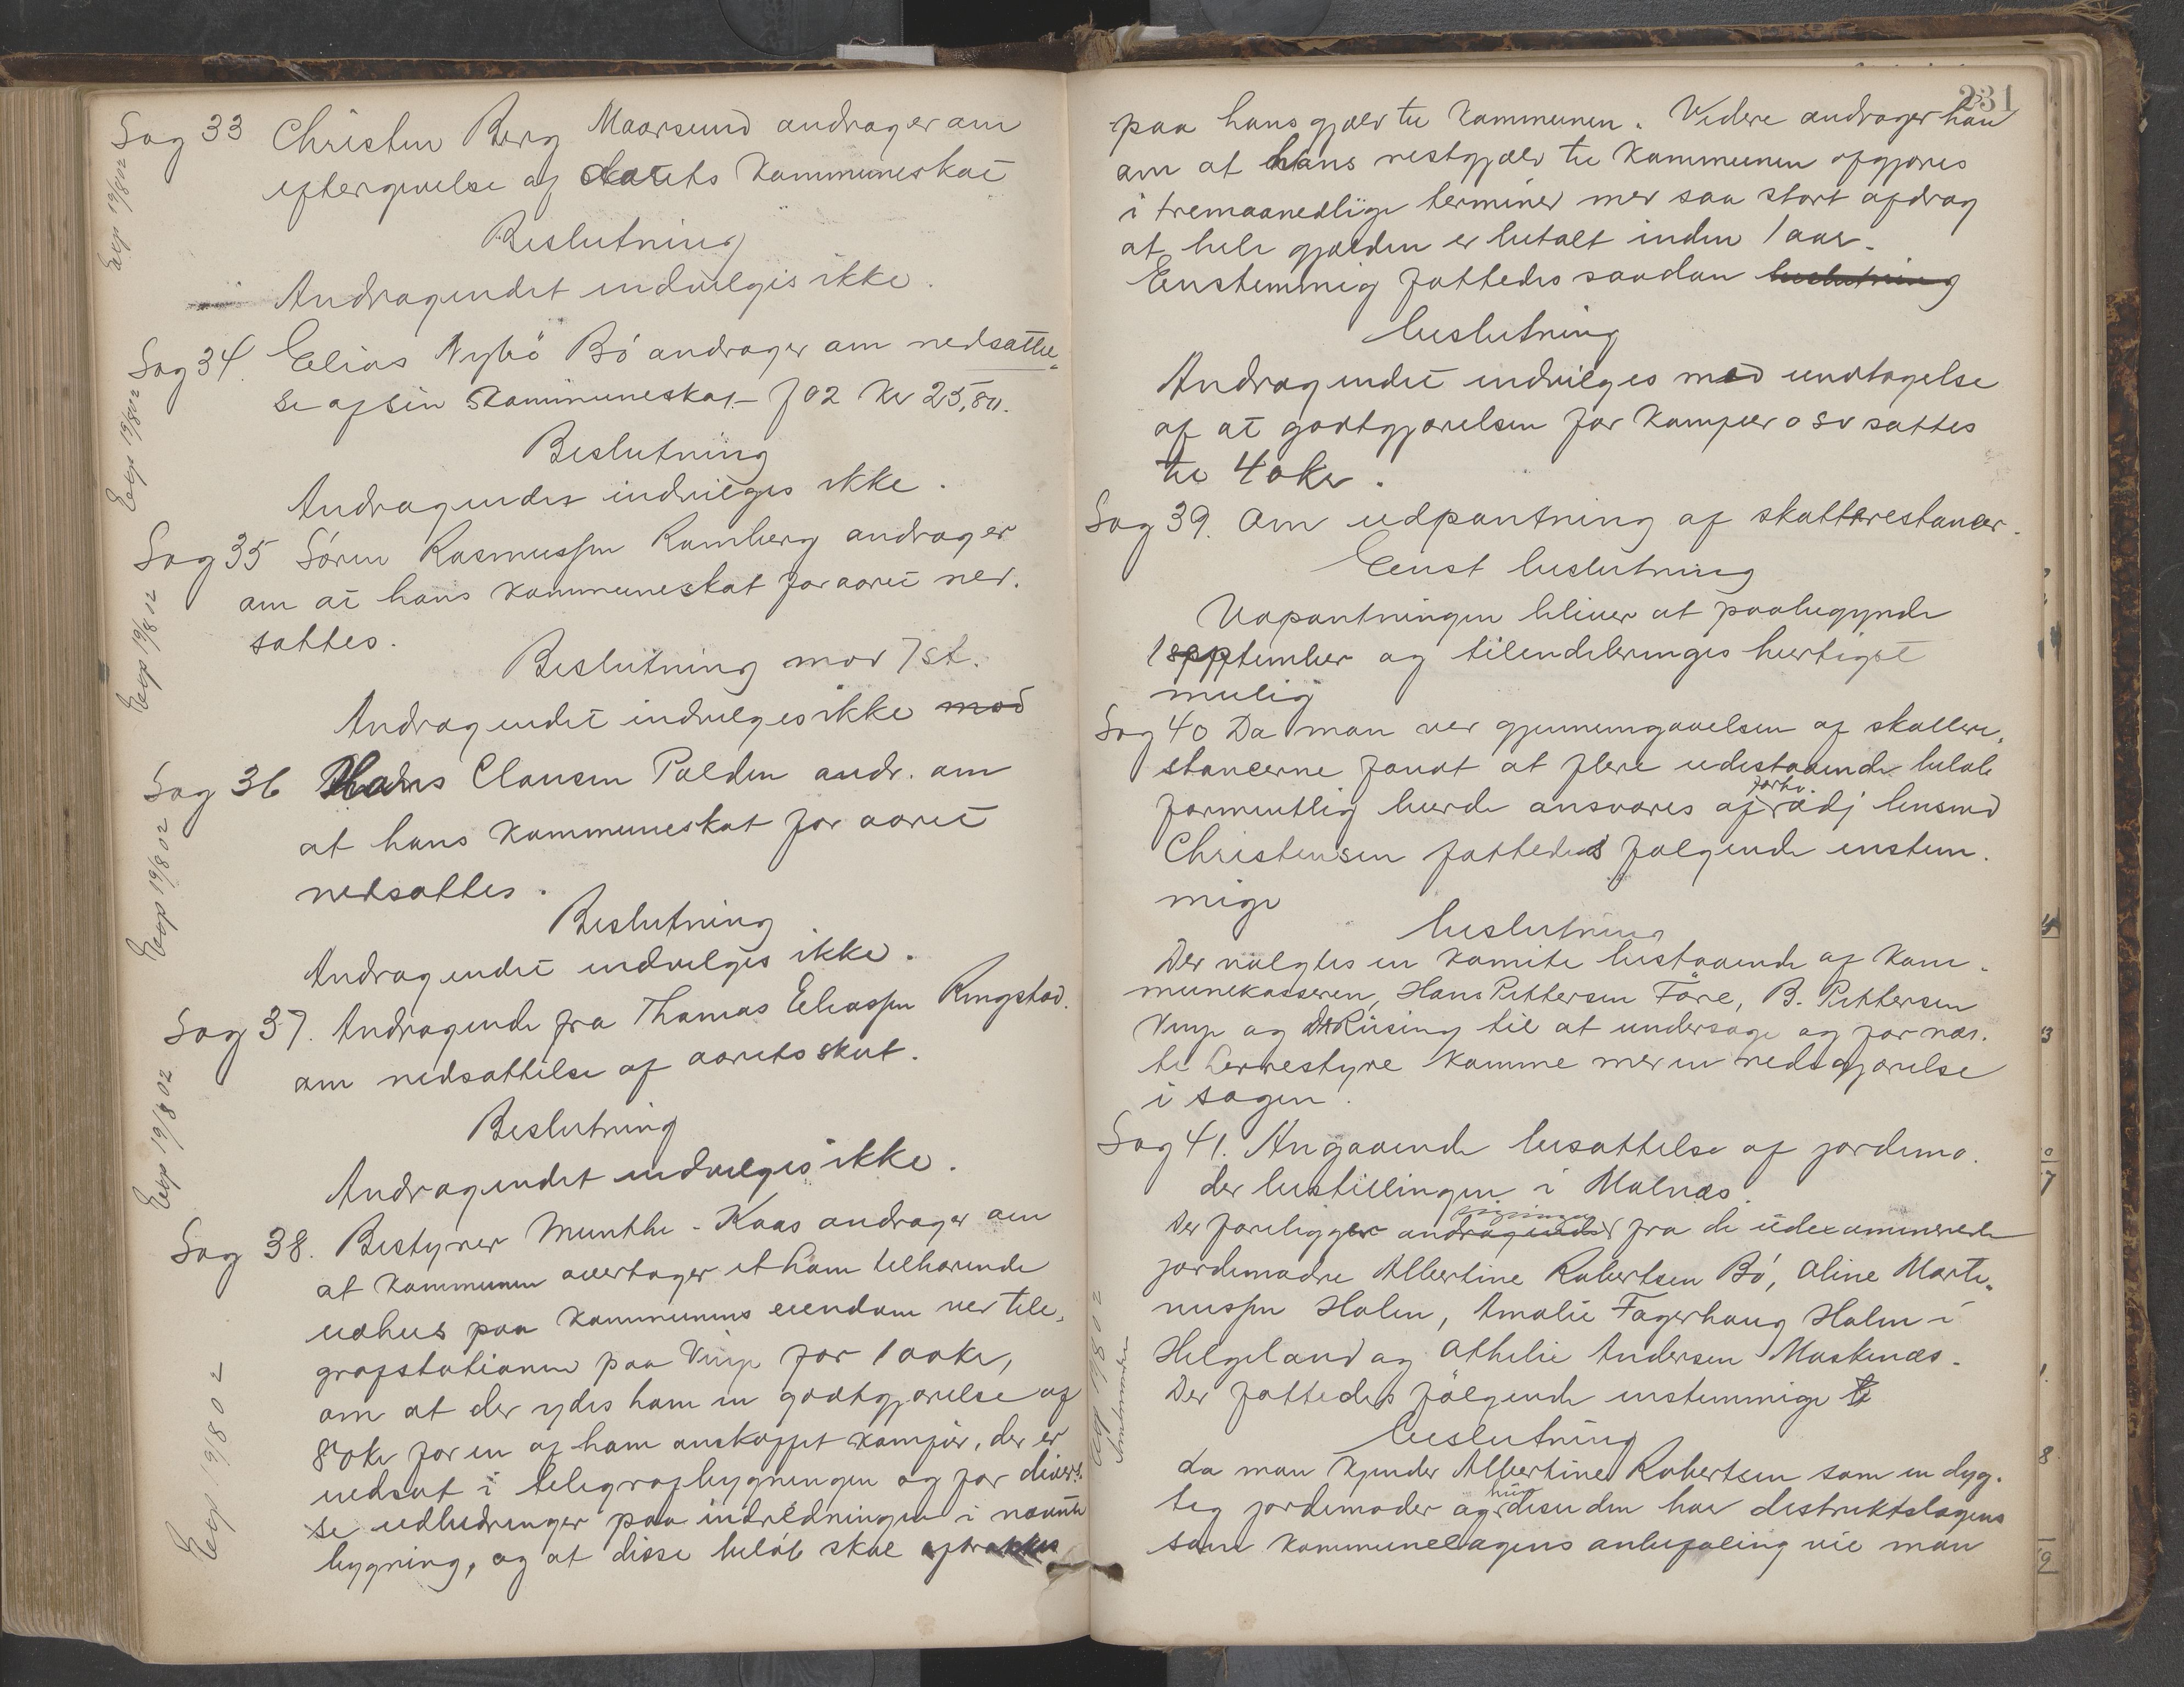 Sag 33 Christen Berg Maarsund andrager om
eftergivelse af aarets Kommuneskat
Exp 19/8 02
Beslutning
Andragendet indvilges ikke.
Sag 34. Elias Nybö Bö andrager om nedsættel-
se af sin Kommuneskat f 02 Kr 25,80.
Exp 19/8 02
Beslutning
Andragendet indvilges ikke.
Sag 35 Sören Rasmussen Ramberg andrager
om at hans Kommuneskat for aaret ned-
sættes.
Exp 19/8 02
Beslutning mod 7 st.
Andragendet indvilges ikke mod
Sag 36 Hans Clausen Polden andr. om
at hans Kommuneskat for aaret
nedsættes.
Exp 19/8 02
Beslutning
Andragendet indvilges ikke.
Sag 37. Andragende fra Thomas Eliassen Ringstad
om nedsættelse af aarets skat.
Exp 19/8 02
Beslutning
Andragendet indvilges ikke.
Sag 38. Bestyrer Munthe-Kaas andrager om
at Kommunen overtager et ham tilhørende
udhus paa Kommunens eiendom ved tele-
grafstationen paa Vinje for 100 kr,
om at der ydes ham en godtgjørelse af
80 kr for en af ham anskaffet komfür, der er
indsat i telegrafbygningen og for diver-
se udbedringer paa indredningen i nævnte
bygning, og at disse beløb skal afdrages
Exp 19/8 02
231
paa hans gjæld til Kommunen. Videre andrager han
om at hans restgjæld til Kommunen afgjøres
i tremaanedlige terminer med saa stort afdrag
at hele gjælden er betalt inden 1 aar.
Enstemmig fattedes saadan beslutning
beslutning
Andragendet indvilges med undtagelse
af at godtgjørelsen for Komfur o s v sættes
til 40 kr.
Sag 39. Om udpantning af skatterestancer.
Enst beslutning
Udpantningen bliver at paabegynde
1 september og tilendebringes hurtigst
mulig
Sag 40 Da man ved gjennemgaaelsen af skattere-
stancerne fandt at flere udestaaende beløb
formentlig burde ansvares af forhv. lensmd
Christensen fattedes følgende enstem-
mige
beslutning
Der valgtes en komite bestaaende af Kom-
munekasseren, Hans Pettersen Före, B. Pettersen
Vinje og Riising til at undersøge og for næs-
te herredstyre komme med en redegjørelse
i sagen.
Sag 41. Angaaende besættelse af jordmo-
derbestillingen i Malnæs.
Der foreligger andragender fra de udexaminerede
jordemødre Albertine Robertsen Bö, Oline Marti-
nussen Holm, Amalie Fagerhaug Holm i
Helgeland og Othelie Andersen Moskenæs.
Der fattedes følgende enstemmige
beslutning
da man kjender Albertine Robertsen som en dyg-
tig jordemoder og hun desuden har distriktslægens
som Kommunelægens anbefaling vil man